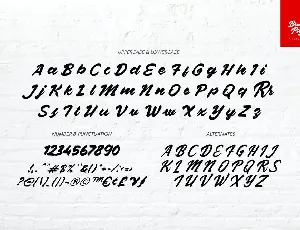 UPPERCASE & LOWERCASE
AaBbCcDdEeFfGgHhIi
JjKkLlMmNnOoPpQqRr
SsTtUuVvWwXxYyZz
NUMBER & PUNCTUATION
1234567890
ALTERNATES
ABCDEFGHIJ
KLMNOPQRS
TUVWXYZ